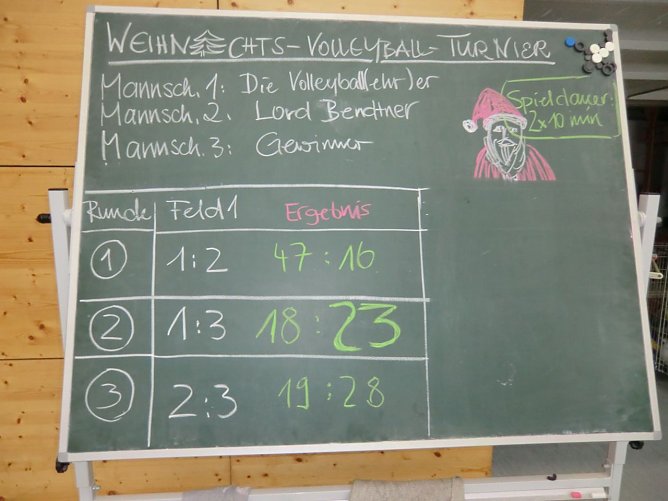 WEIHNACHTS-VOLLEYBALL-TURNIER
Mannsch. 1: Die Volleyball(ehr)er
Mannsch. 2: Lord Bendtner
Mannsch. 3: Gewinner
Spieldauer:
2x10 min
Runde Feld 1 Ergebnis
1 1:2 47:16
2 1:3 18:23
3 2:3 19:28